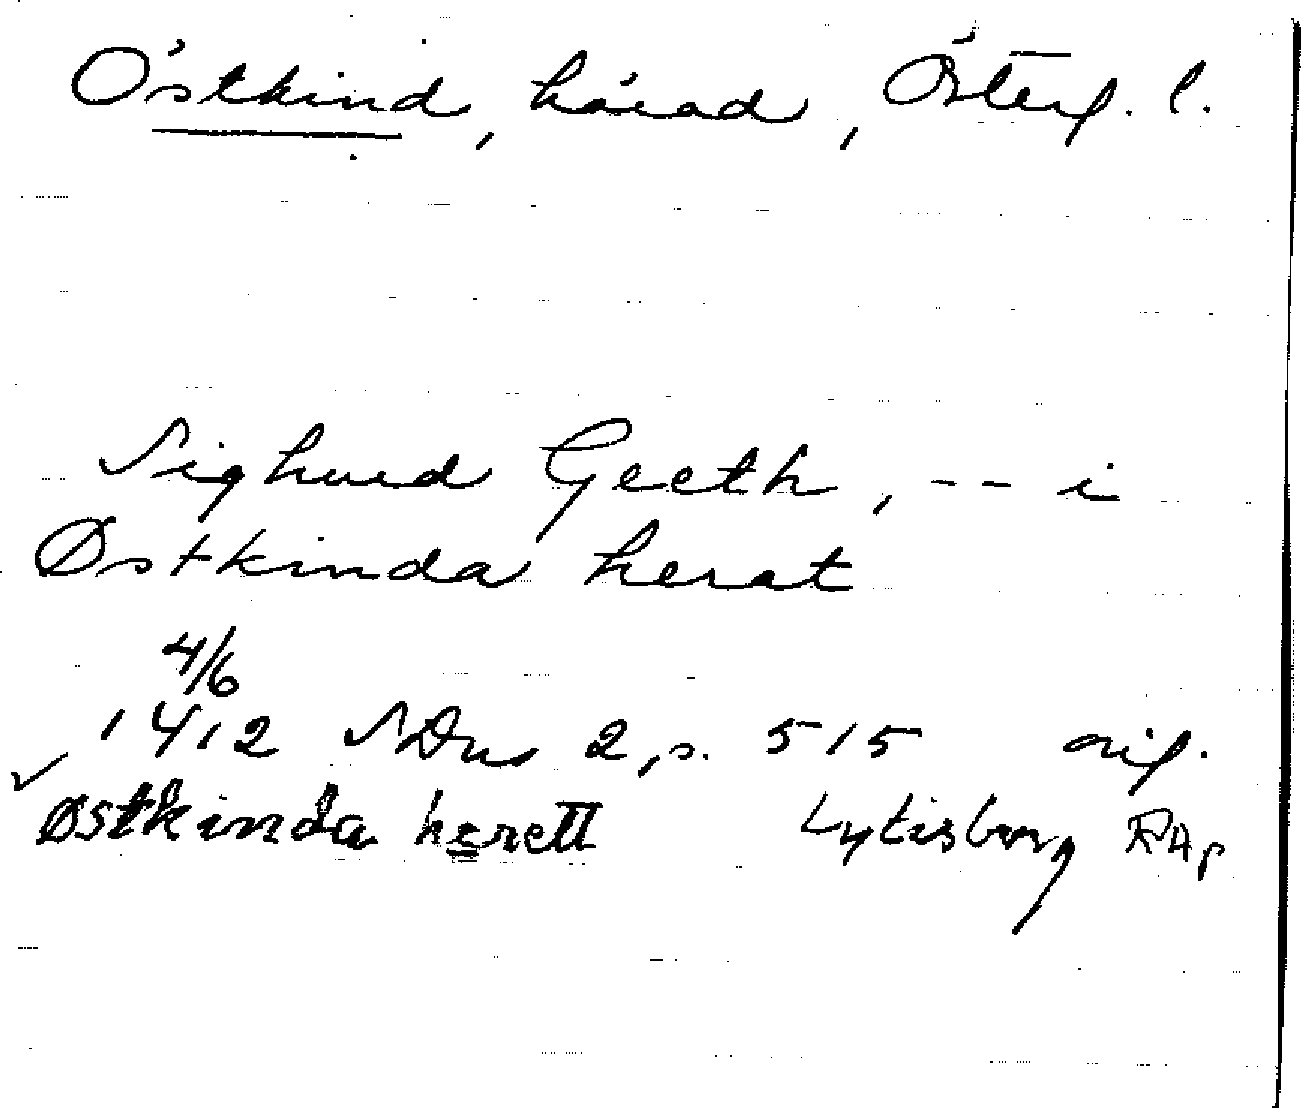 Östkind, härad, Österg. l.
Sighurd Geeth, -- i
Østkinda herat
4/6
1412 SDns 2, s. 515 orig.
✓
Østkinda herett Lytisborg RAp